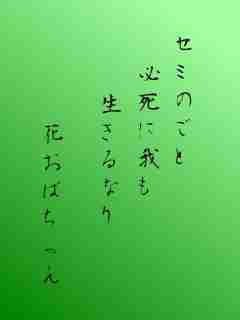 セミのごと
必死に我も
生きるなり
死おばちっえ